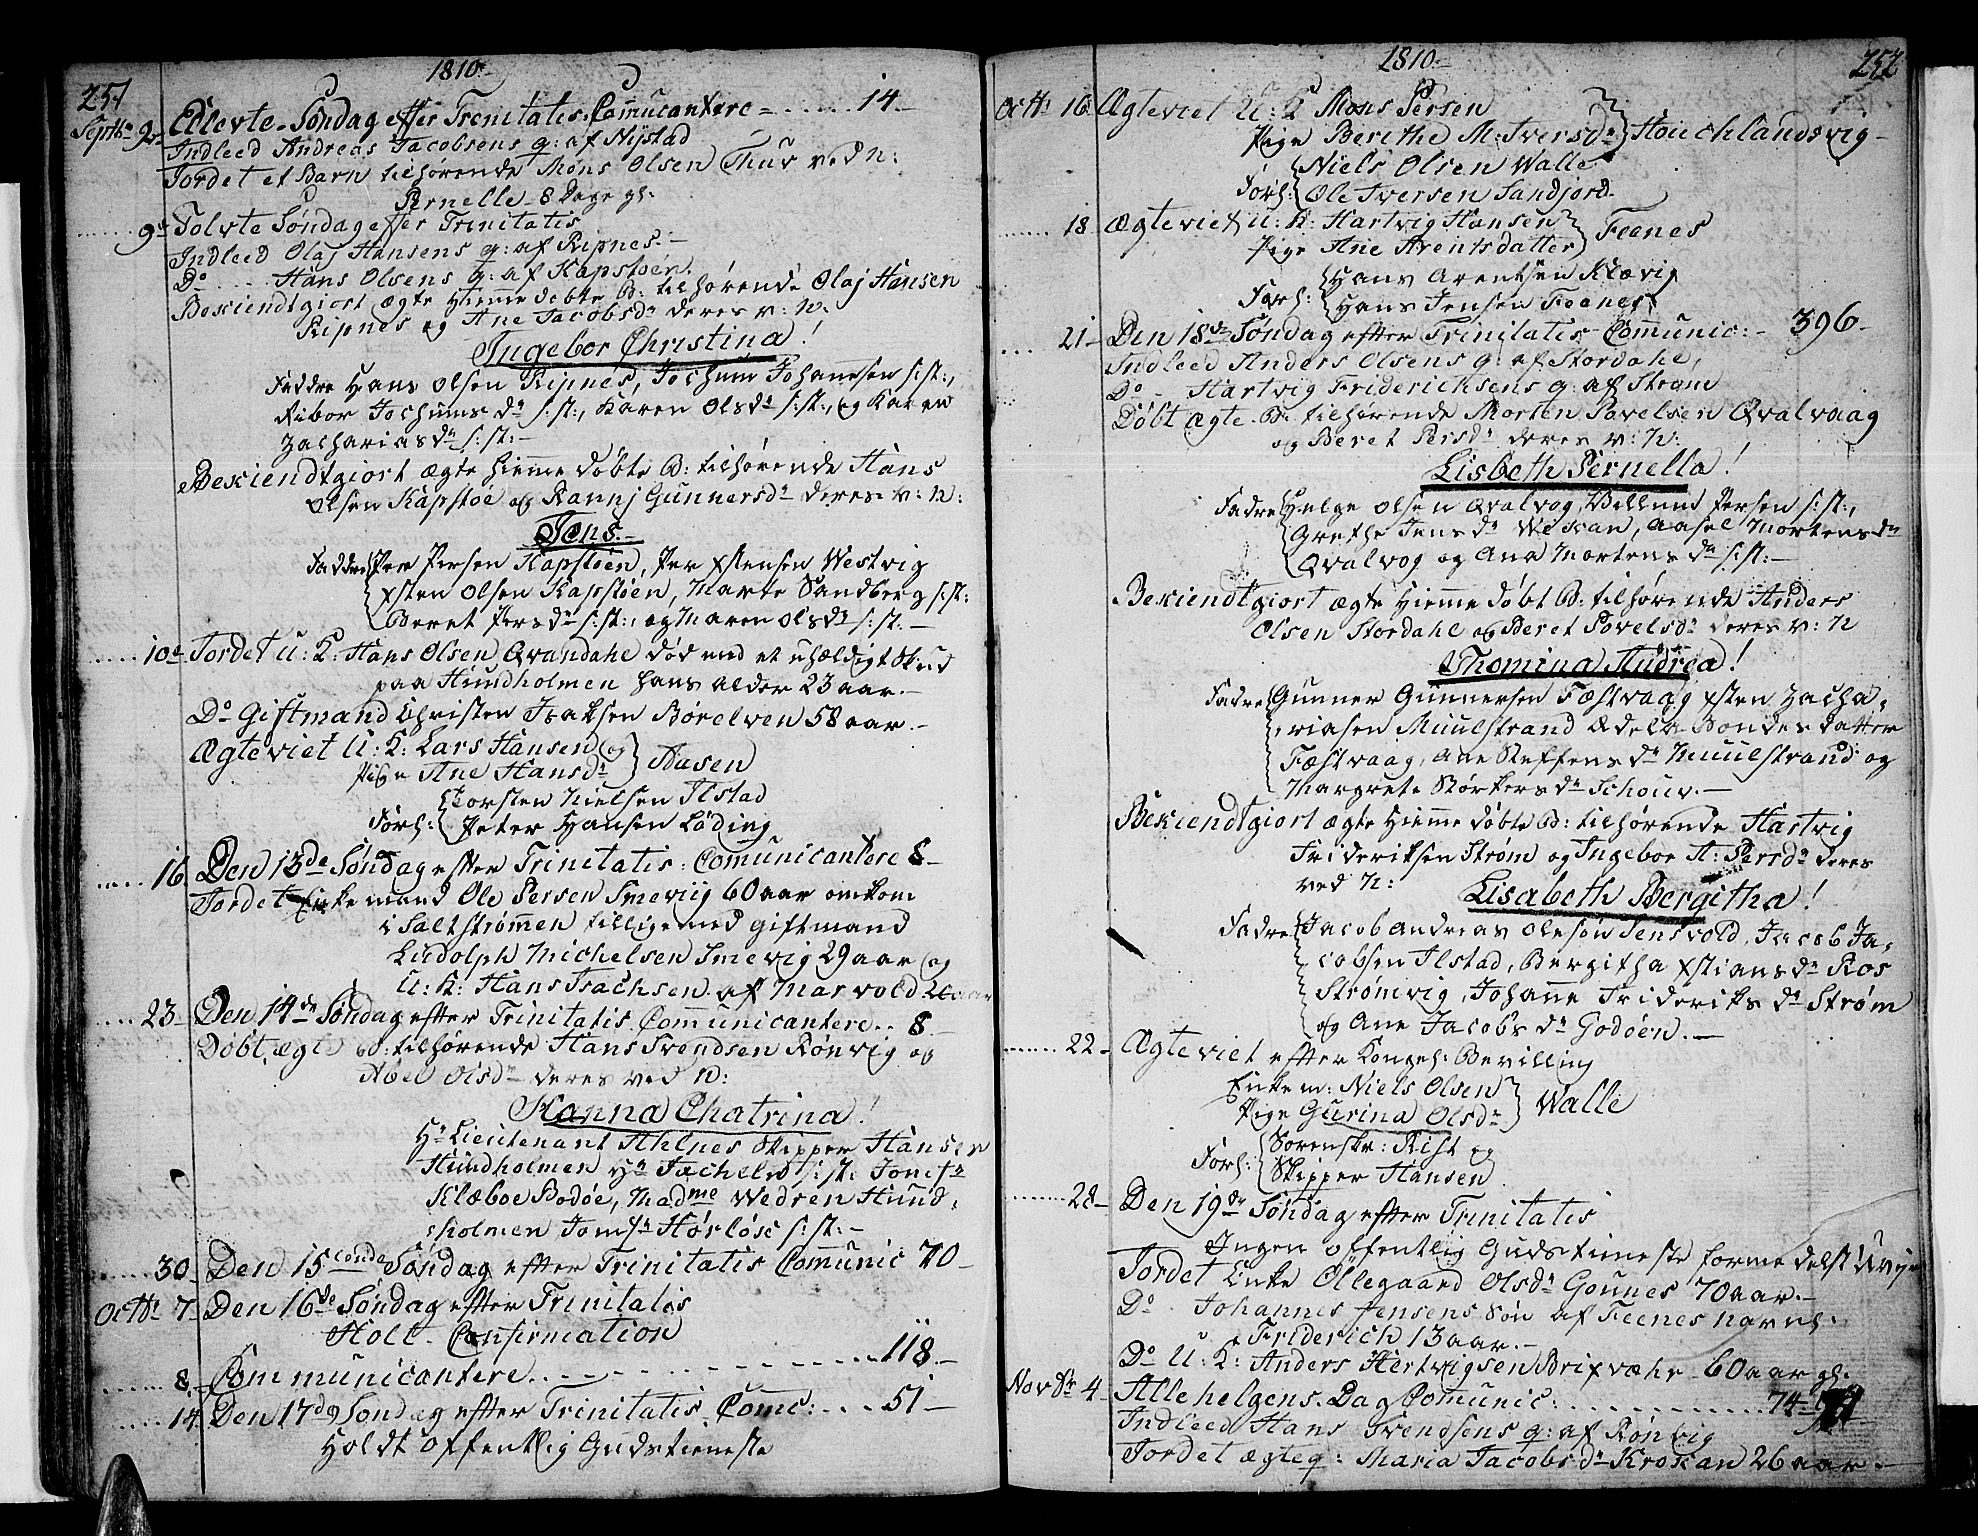 251
1810.
Septbr 2. Ellevte Søndag effter Trinitatis. Comucantere = ...... 14 –
Indleed Andreas Jacobsens q: af Nystad
Jordet et Barn tilhørende Møns Olsen Thuv ved n:
Pernelle – 8 Dage gl:
...... 9de Tolvte Søndag effter Trinitatis
Indleed Olaj Hansens q: af Ripnes. –
Do .... Hans Olsens q: af Kapstøen.
Bekiendtgiort ægte hiemme døbte B: tilhørende Olaj Hansen
Ripnes og Ane Jacobsdr deres v: N:
Ingebor Christina!
Faddre Hans Olsen Ripnes, Jochum Johannesen s: st:,
Ribor Jochumsdr s: st:, Karen Olsdr s: st:, og Karen
Zachariasdr s: st: –
Bekiendtgiort ægte hiemme døbte B: tilhørende Hans
Olsen Kapstøe og Rannj Gunnersdr deres v: n:
Jens. –
Faddre Per Persen Kapstøen, Per Xstensen Westvig
Xsten Olsen Kapstøen, Marte Sandberg s: st:
Beret Persdr s: st:, og Maren Olsdr s: st. –
..... 10de Jordet U: K: Hans Olsen Qvandahl død ved et uhældigt Skud
paa Hundholmen hans alder 23 aar. –
Do Giftmand Christen Isaksen Børelven 58 aar –
Ægteviet U: K: Lars Hansen og
Pige Ane Hansdr } Aasen
Forl: { Torsten Nielsen Ilstad
Peter Hansen Løding
..... 16. Den 13de Søndag effter Trinitatis: Comunicantere 8 –
Jordet Enkemand Ole Persen Smeviig 60 aar omkom
i Saltstrømmen tilligemed giftmand
Ludolph Michelsen Smevig 29 aar og
U: K: Hans Isachsen af Marvold 20 aar
.... 23 – Den 14de Søndag effter Trinitatis Communicantere .. 8 –
Døbt, ægte B: tilhørende Hans Svendsen Rønvig og
Abel Olsdr deres ved N:
Hanna Chatrina!
Hr Lieutenant Ahlnes Skipper Hansen
Hundholmen Hr Jachelln s: st: Jomfr
Klæboe Bodøe, Madme Wedren Hund-
holmen Jomfr Hørløse s: st: –
...... 30 – Den 15 Søndag effter Trinitatis Comunic 70 –
Octbr 7 – Den 16de Søndag effter Trinitatis
Holt – Confirmation
....... 8 – Communicantere .......... 118. –
..... 14 Den 17de Søndag effter Trinitatis. Comc: ... 51 –
Holdt offentlig Gudstieneste
1810.
252
Octbr 16. Ægteviet U: K Mons Persen
Pige Berithe M. Iversdr } Houchlandsvig –
Forl: { Niels Olsen Walle
Ole Iversen Sandjord
....... 18 Ægteviet U: K: Hartvig Hansen
Pige Ane Arentsdatter } Feenes
Forl: { Hans Arentsen Klævig
Hans Jensen Feenes
.... 21 – Den 18de Søndag effter Trinitatis Comunic: – 396 –
Indleed Anders Olsens q: af Stordahl,
Do – Hartvig Friderichsens q: af Strøm
Døbt ægte B: tilhørende Morten Povelsen Qvalvaag
og Beret Persdr deres v: N:
Lisbeth Pernella!
Fadre Helge Olsen Qvalvog, Villum Persen s: st:,
Grethe Jensdr Weskan, Aasel Mortensdr
Qvalvog og Ana Mortensdr s: st: –
Bekiendtgiort ægte hiemme døbt B: tilhørende Anders
Olsen Stordahl og Beret Povelsdr deres v: N
Thomina Andrea!
Fadre Gunner Gunnersen Fæstvaag Xsten Zacha-
riasen Muulstrand Ædel Bondesdatter
Fæstvaag, Ane Steffensdr Muulstrand og
Margrete Størkersdr Schouv. –
Bekiendtgiort ægte hiemme døbte B: tilhørende Hartvig
Frideriksen Strøm og Ingebor A: Persdr deres
ved N:
Lisabeth Bergitha!
Fadre Jacob Andreas Olesøn Jensvold, Jacob Ja-
cobsen Ilstad, Bergitha Xstiansdr Kos
Strømvig, Johanne Frideriksdr Strøm
og Ane Jacobsdr Godøen. –
....... 22 – Ægteviet effter Kongel: Bevilling
Enkem: Niels Olsen
Pige Gurina Olsdr } Walle
Forl: { Sorenskr: Rist og
Skipper Hansen
........ 28 – Den 19de Søndag effter Trinitatis
Ingen offentlig Gudstieneste formedelst Uvejr
Jordet Enke Ollegaard Olsdr Gounes 70 aar. –
Do Johannes Jensens Søn af Feenes navnl:
Friderich 13 aar. –
Do U: K: Anders Hertvigsen Brixvær 60 aar gl.
Novbr 4 Allehelgens Dag Comunic: ........... 74 –
Indleed Hans Svendsens q: af Rønvig
Jordet ægteq: Maria Jacobsdr Krokan 26 aar. –